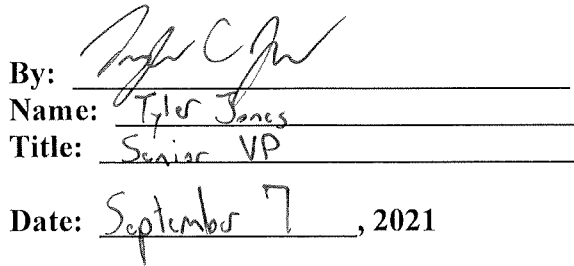 By: Tyler C Jones
Name: Tyler Jones
Title: Senior VP
Date: September 7, 2021